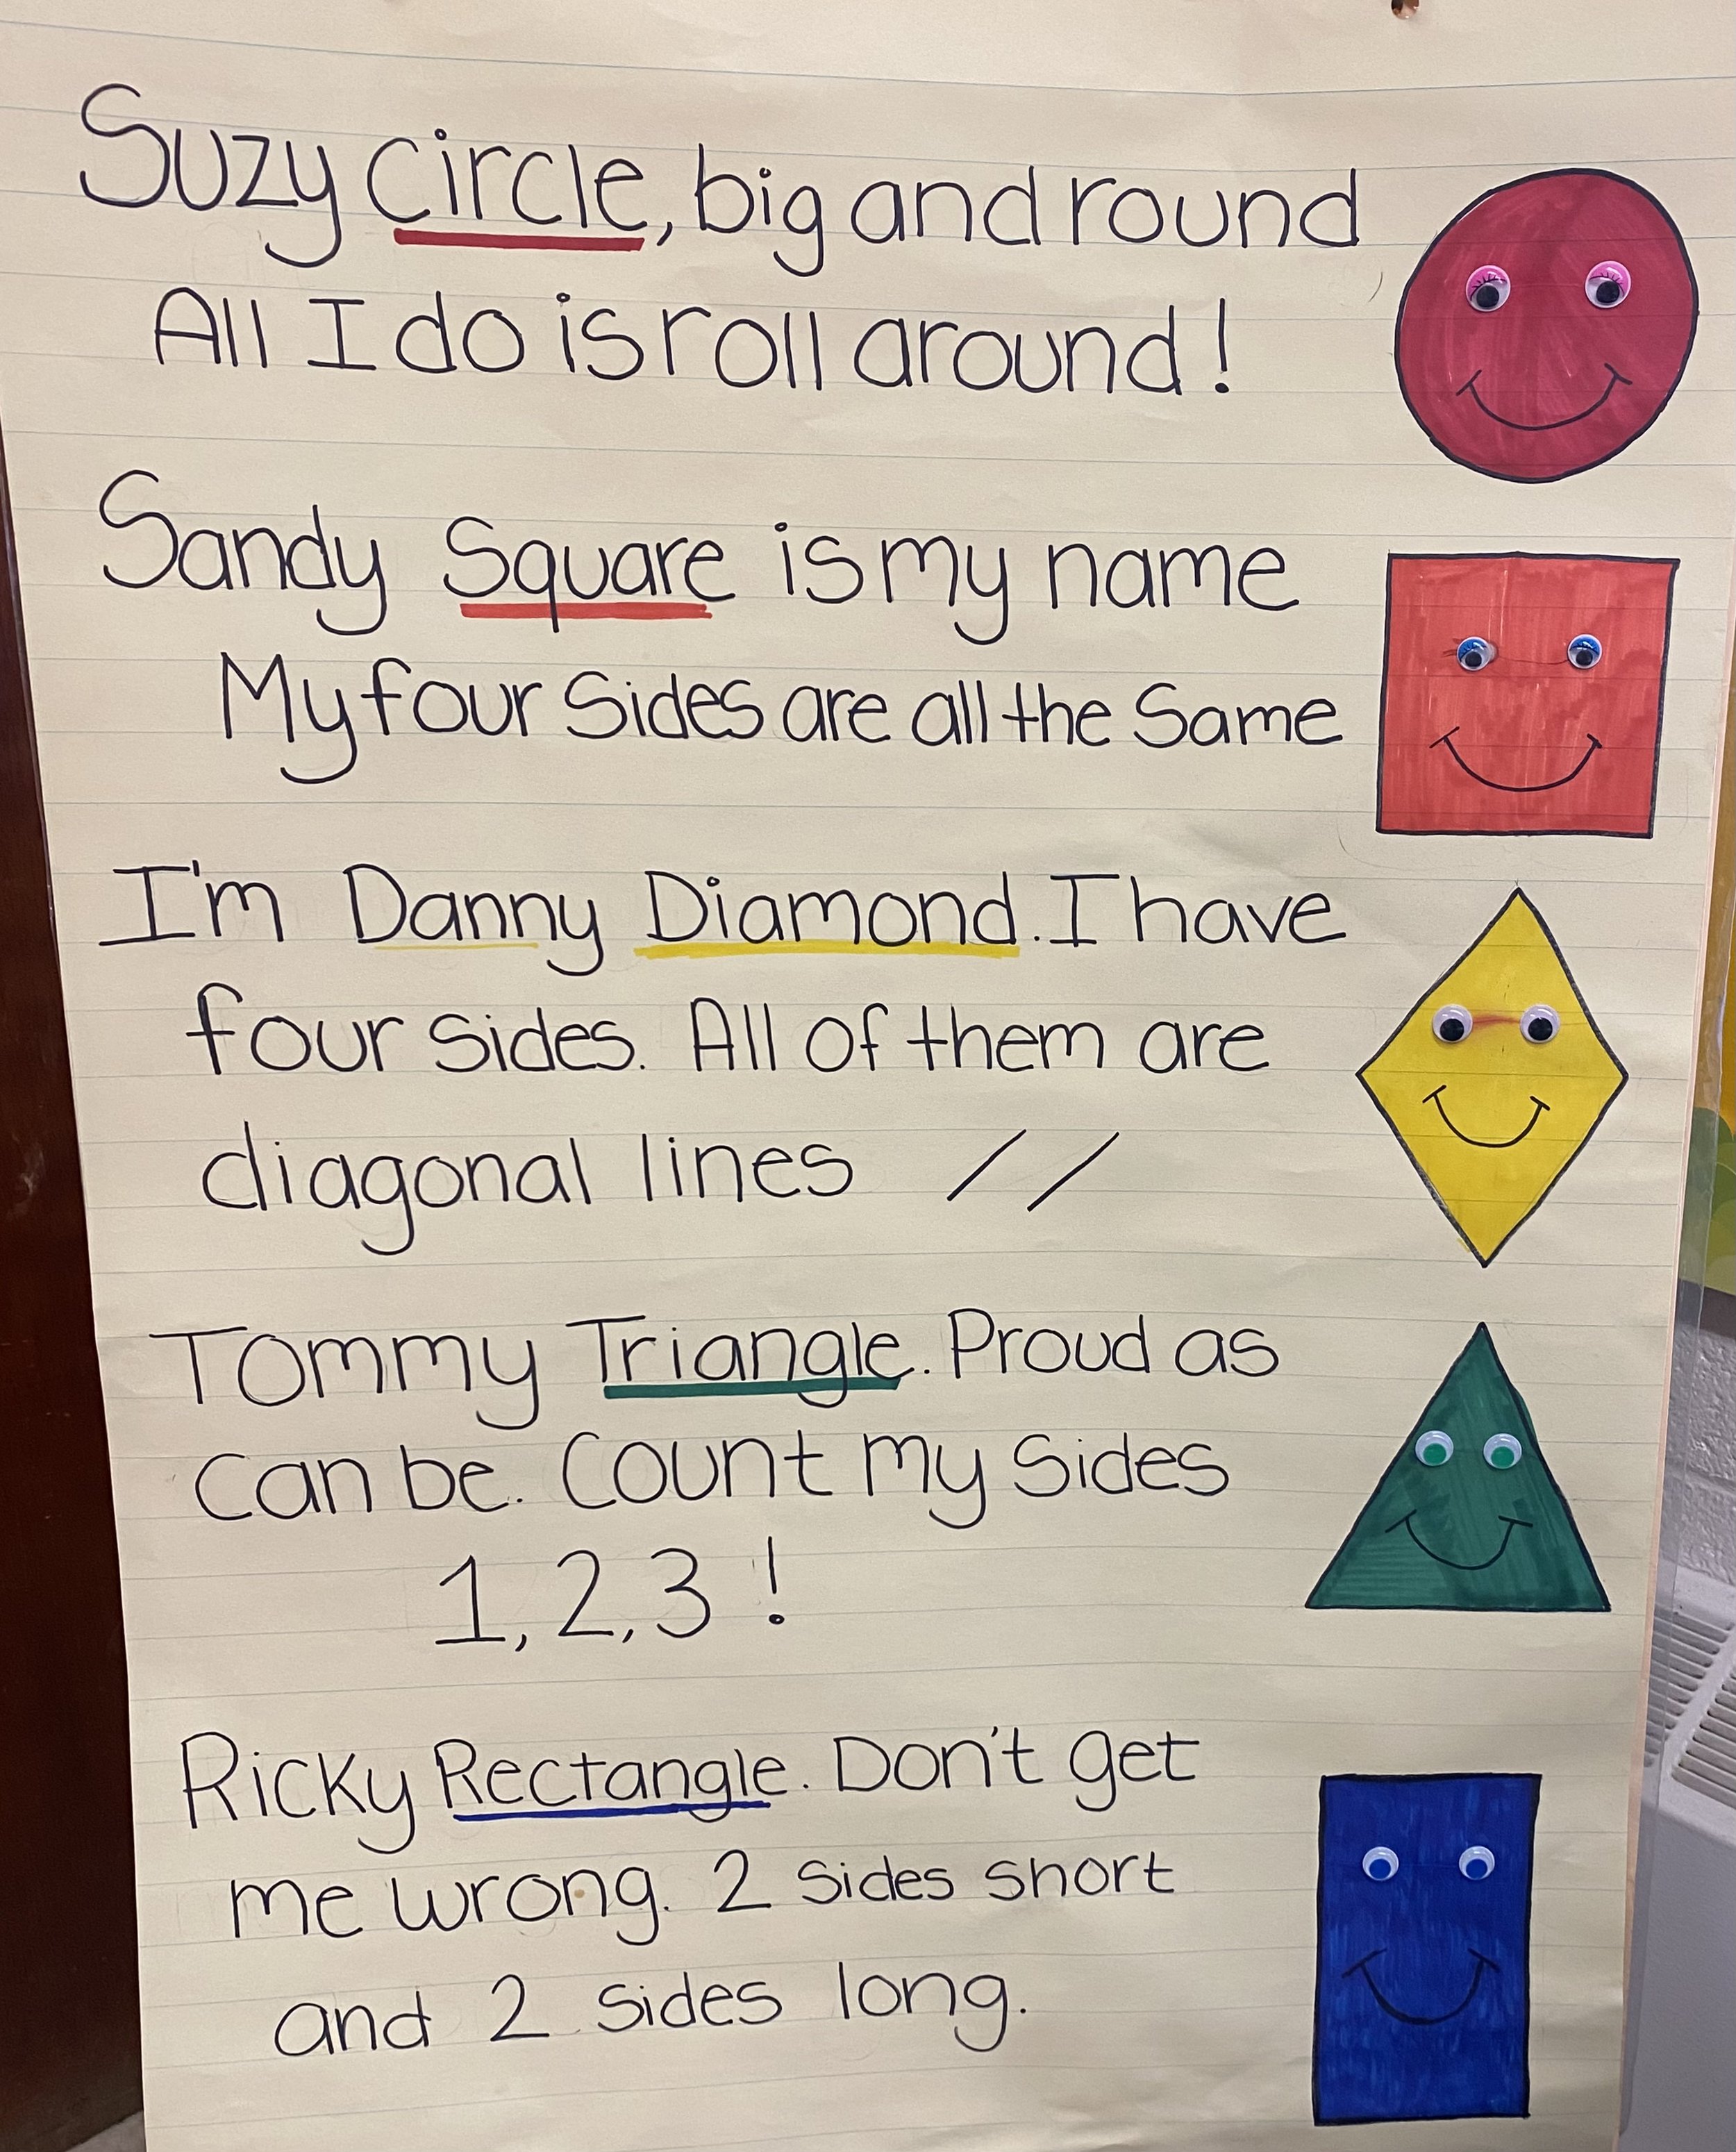 Suzy circle, big and round
All I do is roll around!
Sandy Square is my name
My four Sides are all the Same
I'm Danny Diamond. I have
four sides. All of them are
diagonal lines //
Tommy Triangle. Proud as
can be. Count my Sides
1, 2, 3!
Ricky Rectangle. Don't get
me wrong. 2 sides short
and 2 sides long.